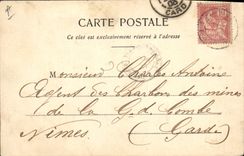 CARTE POSTALE
Ce côté est exclusivement réservé à l'adresse
GARD
Monsieur Charles Antoine
Agent des Charbons des mines
de la G. d. Combe
Nîmes (Gard)